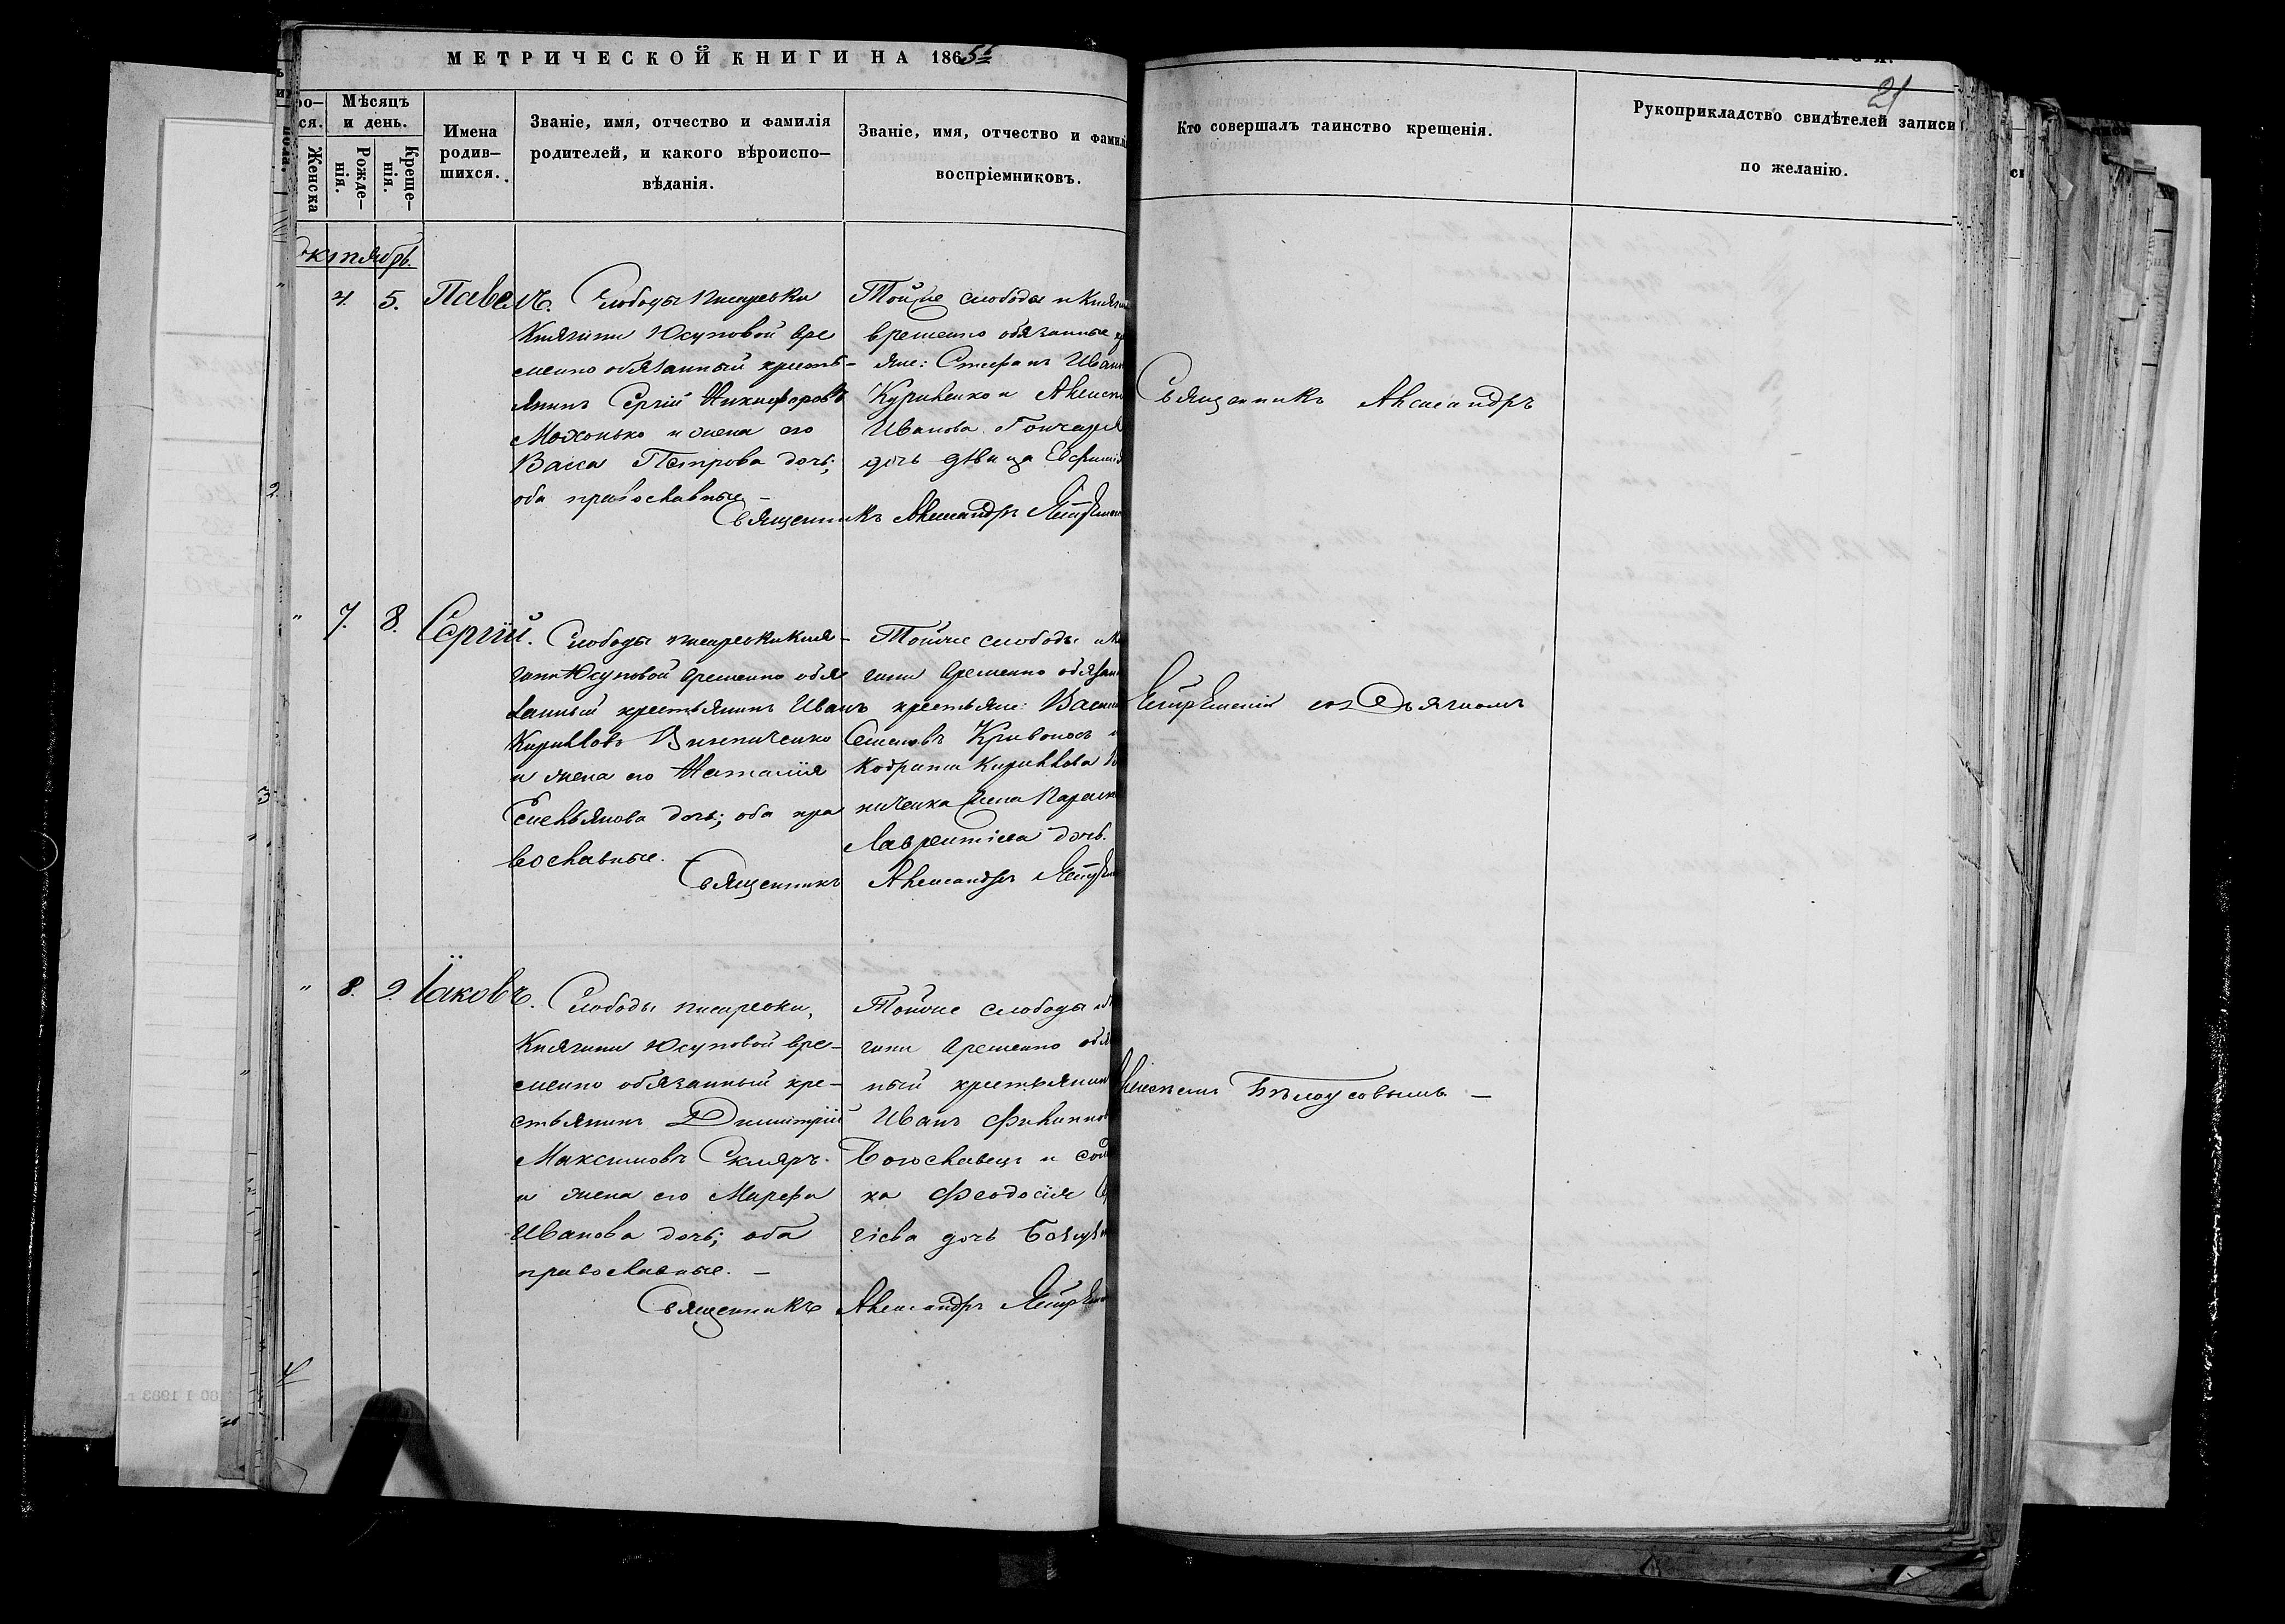 МЕТРИЧЕСКОЙ КНИГИ НА 1865
21
Мѣсяцъ и день.
Женска
Рожде-нія.
Креще-нія.
Имена родив-шихся.
Званіе, имя, отчество и фамилія
родителей, и какого вѣроиспо-
вѣданія.
Званіе, имя, отчество и фамилі
воспріемниковъ.
Кто совершалъ таинство крещенія.
Рукоприкладство свидѣтелей записи
по желанію.
октябрь.
4. 5. Павелъ.
Слободы Писаревки
Княгини Юсуповой вре
менно обязанный кресть-
янинъ Сергій Никифоровъ
Мохонько и жена его
Васса Петрова дочь;
оба православные –
Тойже слободы и Княги
временно обязанные кр
яне: Стефанъ Иван
Куриленко и Алексѣ
Иванова Гончара
дочь дѣвица Евфимія
Священникъ Александръ
" 7. 8. Сергій.
Слободы Писаревки Кня-
гини Юсуповой временно обя
занный крестьянинъ Иванъ
Кирилловъ Винниченко
и жена его Наталія
Емельянова дочь; оба пра
вославные. –
Тойже слободы и Кн
гини временно обязан
крестьяне: Васил
Семеновъ Кривонос и
Кодрата Кириллова Ви
ниченка жена Параск
Лаврентіева дочь.
Священникъ Александръ
" 8. 9. Іаковъ.
Слободы Писаревки,
Княгини Юсуповой вре-
менно обязанный кре-
стьянинъ Димитрій
Максимовъ Скляръ
и жена его Марфа
Иванова дочь; оба
православные. –
Тойже слободы и К
гини временно обяз
ный крестьянин
Иванъ Филиппов
Богославецъ и сол
ка Феодосія
гіева дочь
Священникъ Александръ
Священникъ Александръ
съ Дьячкомъ
Алексѣемъ Бѣлоусовымъ –